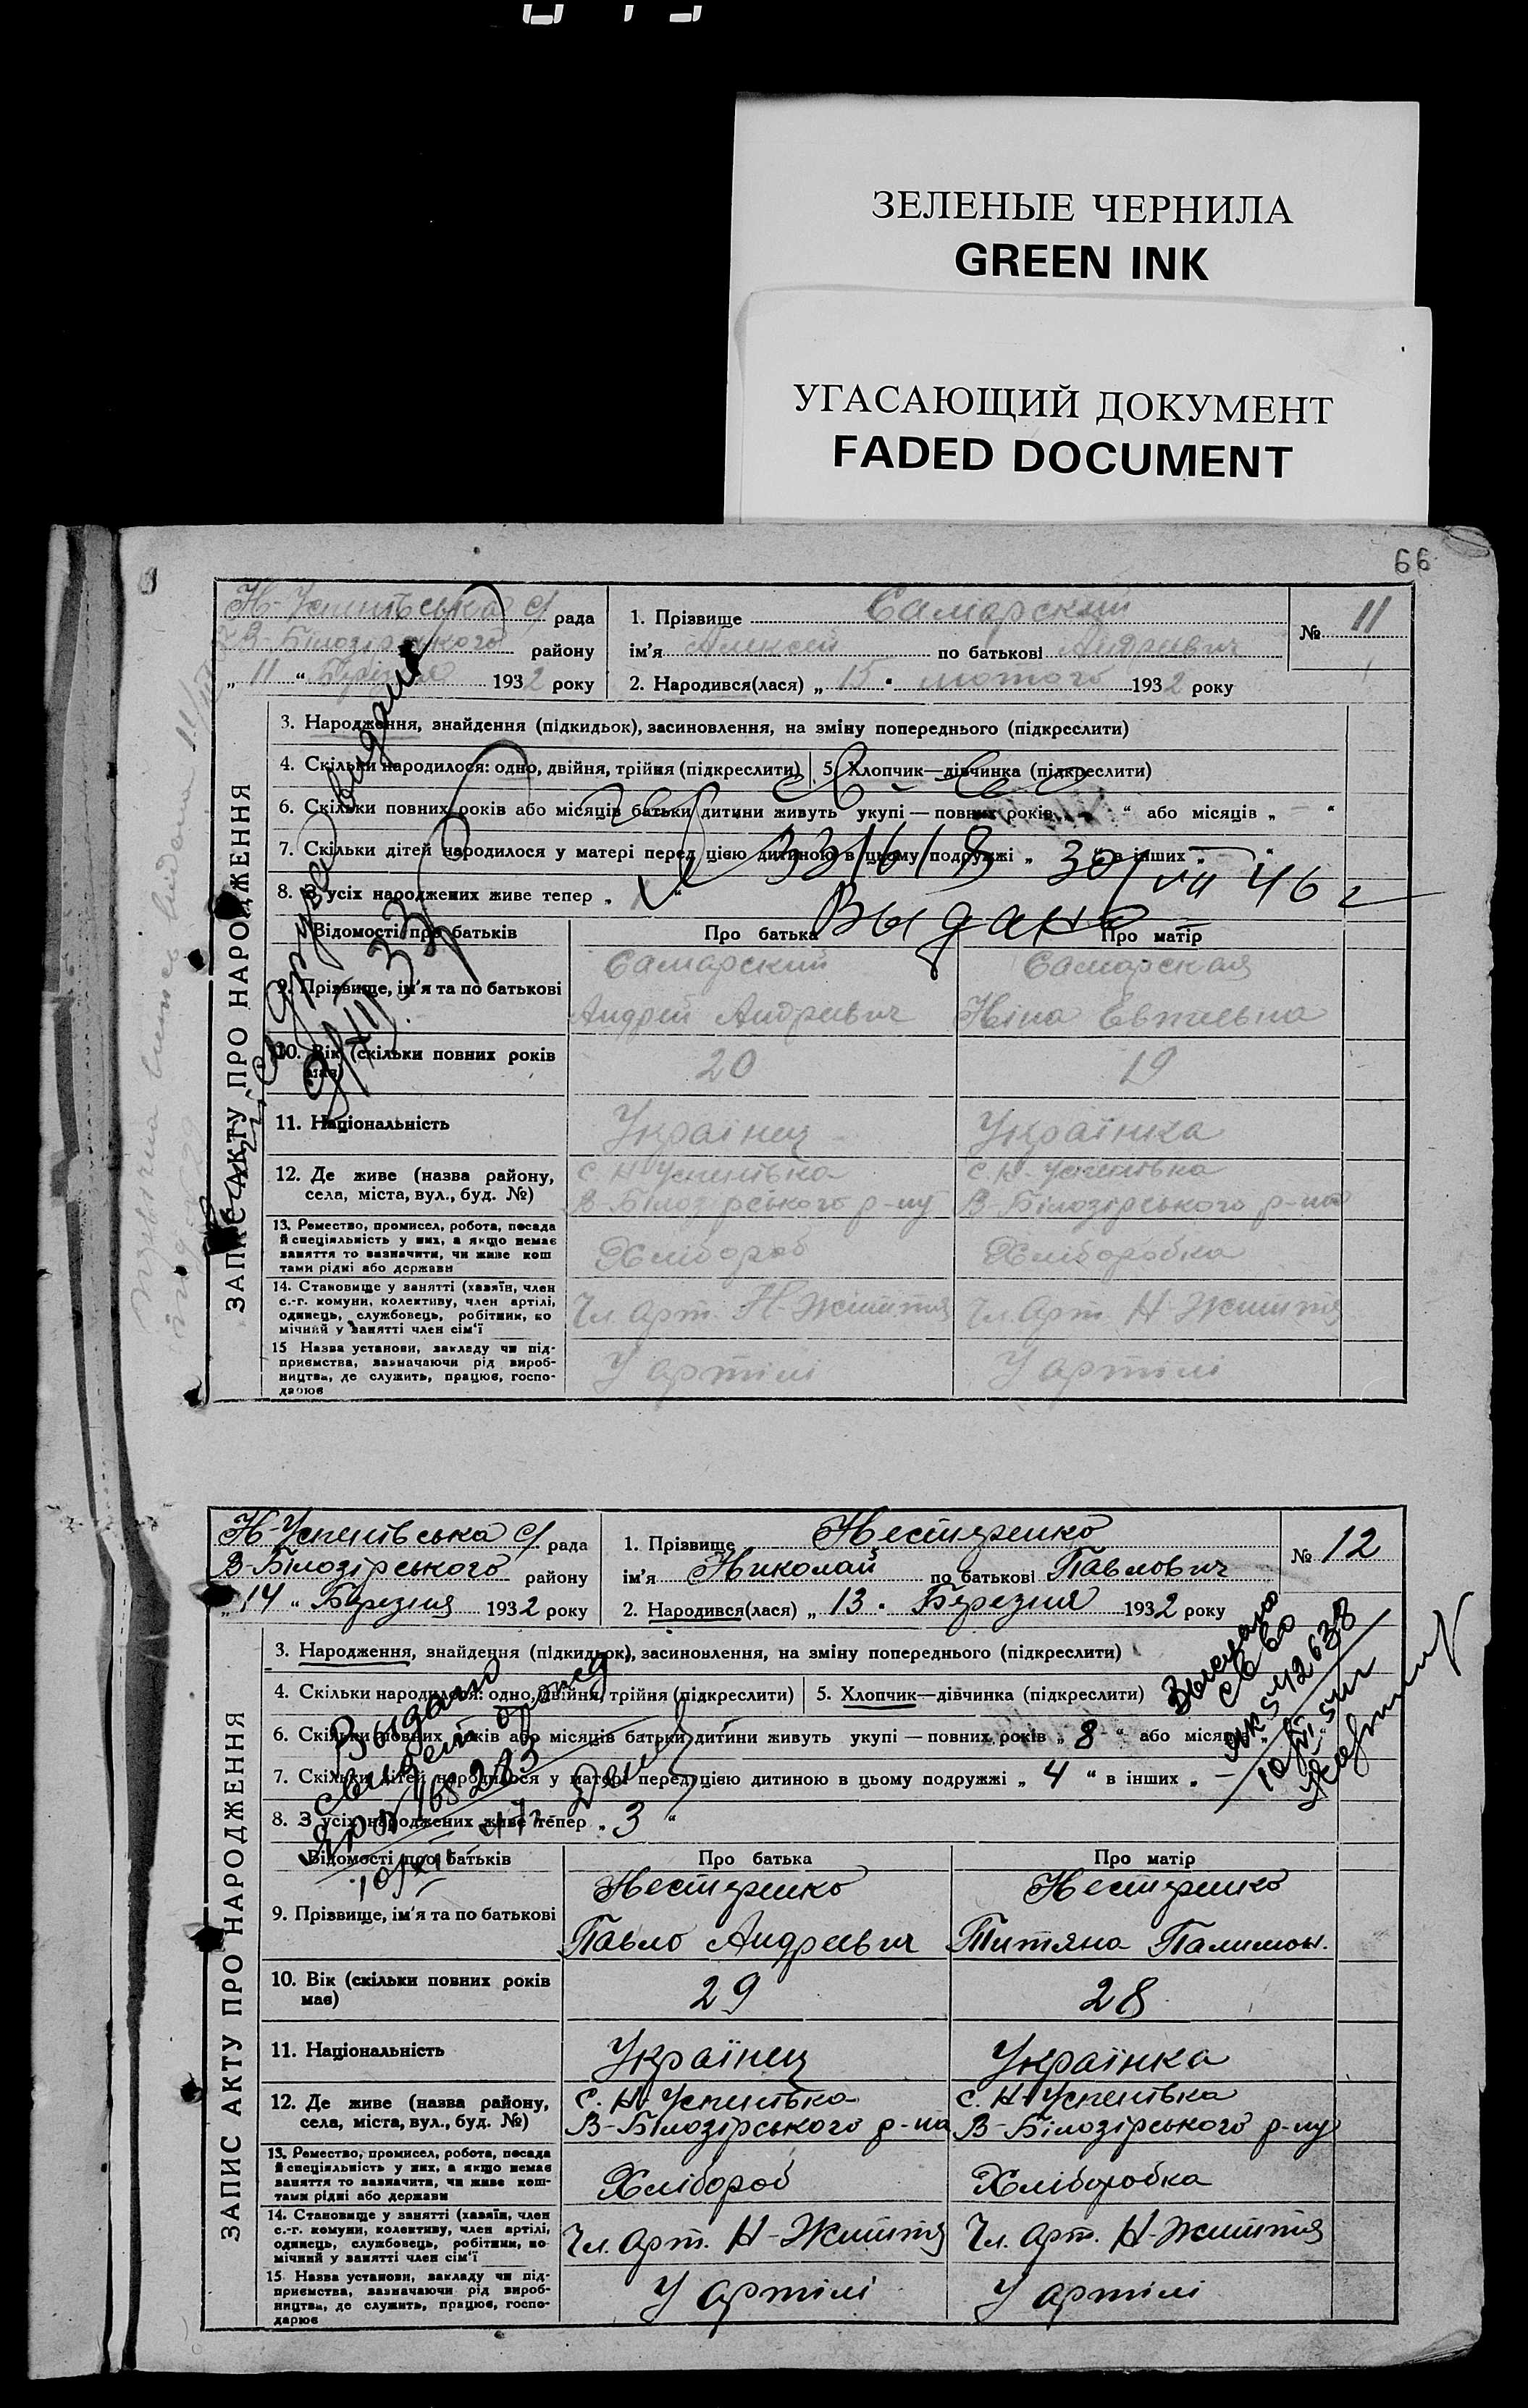 ЗЕЛЕНЫЕ ЧЕРНИЛА
GREEN INK
УГАСАЮЩИЙ ДОКУМЕНТ
FADED DOCUMENT
66
Н-Успенівська с/ рада
В-Білозірського району
„ 11 “ Березня 1932 року
1. Прізвище Самарский
ім'я Алексей по батькові Андревич
2. Народився(лася) „ 15 " лютого 1932 року
№ 11
ЗАПИС АКТУ ПРО НАРОДЖЕННЯ
3. Народження, знайдення (підкидьок), засиновлення, на зміну попереднього (підкреслити)
4. Скільки народилося: одно, двійня, трійня (підкреслити)
5. Хлопчик—дівчинка (підкреслити)
6. Скільки повних років або місяців батьки дитини живуть укупі — повних років „ “ або місяців „ — “
7. Скільки дітей народилося у матері перед цією дитиною в цьому подружжі „ “ в інших „ “
8. З усіх народжених живе тепер „ “
30/VII 46 г
Выдано
Відомості про батьків
Про батька
Про матір
9. Прізвище, ім'я та по батькові
Самарский
Андрей Андревич
Самарская
Ніна Евтиевна
10. Вік (скільки повних років має)
20
19
11. Національність
Українец
Українка
12. Де живе (назва району, села, міста, вул., буд. №)
с. Н-Успенівка
В-Білозірського р-ну
с. Н-Успенівка
В-Білозірського р-на
13. Ремество, промисел, робота, посада
й спеціяльність у них, а якщо немає
заняття то зазначити, чи живе кош
тами рідні або держави
Хлібороб
Хліборобка
14. Становище у занятті (хазяїн, член
с.-г. комуни, колективу, член артілі,
одинець, службовець, робітник, по
мічний у занятті член сім'ї
Чл. арт. Н-Життя
Чл. арт. Н-Життя
15 Назва установи, закладу чи під-
приємства, зазначаючи рід вироб-
ництва, де служить, працює, госпо-
дарює
У артілі
У артілі
Н-Успенівська с/ рада
В-Білозірського району
„ 14 “ Березня 1932 року
1. Прізвище Нестеренко
ім'я Николай по батькові Павлович
2. Народився(лася) „ 13 " Березня 1932 року
№ 12
ЗАПИС АКТУ ПРО НАРОДЖЕННЯ
3. Народження, знайдення (підкидьок), засиновлення, на зміну попереднього (підкреслити)
4. Скільки народилося: одно, двійня, трійня (підкреслити)
5. Хлопчик—дівчинка (підкреслити)
6. Скільки повних років або місяців батьки дитини живуть укупі — повних років „ 8 “ або місяців „
7. Скільки дітей народилося у матері перед цією дитиною в цьому подружжі „ 4 “ в інших „ —
8. З усіх народжених живе тепер „ 3 “
Выдано
Відомості про батьків
Про батька
Про матір
9. Прізвище, ім'я та по батькові
Нестеренко
Павло Андреевич
Нестеренко
Титяна Палимон.
10. Вік (скільки повних років має)
29
28
11. Національність
Українец
Українка
12. Де живе (назва району, села, міста, вул., буд. №)
с. Н-Успенівка
В-Білозірського р-на
с. Н-Успенівка
В-Білозірського р-ну
13. Ремество, промисел, робота, посада
й спеціяльність у них, а якщо немає
заняття то зазначити, чи живе кош-
тами рідні або держави
Хлібороб
Хліборобка
14. Становище у занятті (хазяїн, член
с.-г. комуни, колективу, член артілі,
одинець, службовець, робітник, по
мічний у занятті член сім'ї
Чл. арт. Н-Життя
Чл. арт. Н-Життя
15 Назва установи, закладу чи під-
приємства, зазначаючи рід вироб-
ництва, де служить, працює, госпо-
дарює
У артілі
У артілі